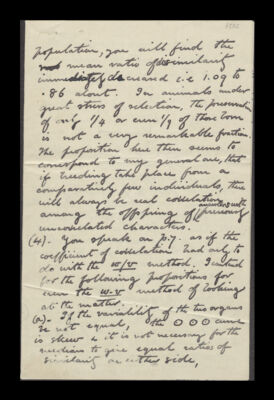 population, you will find the
mean ratio of dissimilarity
immediately decreased i.e. 1.09 to
.86 about. In animals under
great stress of selection, the preservation
of only 1/4 or even 1/9 of those born
is not a very remarkable fraction.
The proposition here then seems to
correspond to my general one, that
if breeding take place from a
comparatively few individuals, there
will always be real correlation
among the offspring of previously
uncorrelated characters.
(4). You speak on p.7. as if the
coefficient of correlation had only to
do with the w/v method. I cited
for the following propositions for
even the w-v method of looking
at the matter.
(a). If the variability of the two organs
be not equal, the O O O curve
is skew & it is not necessary for the
medians to give equal ratios of
similarity on either side,